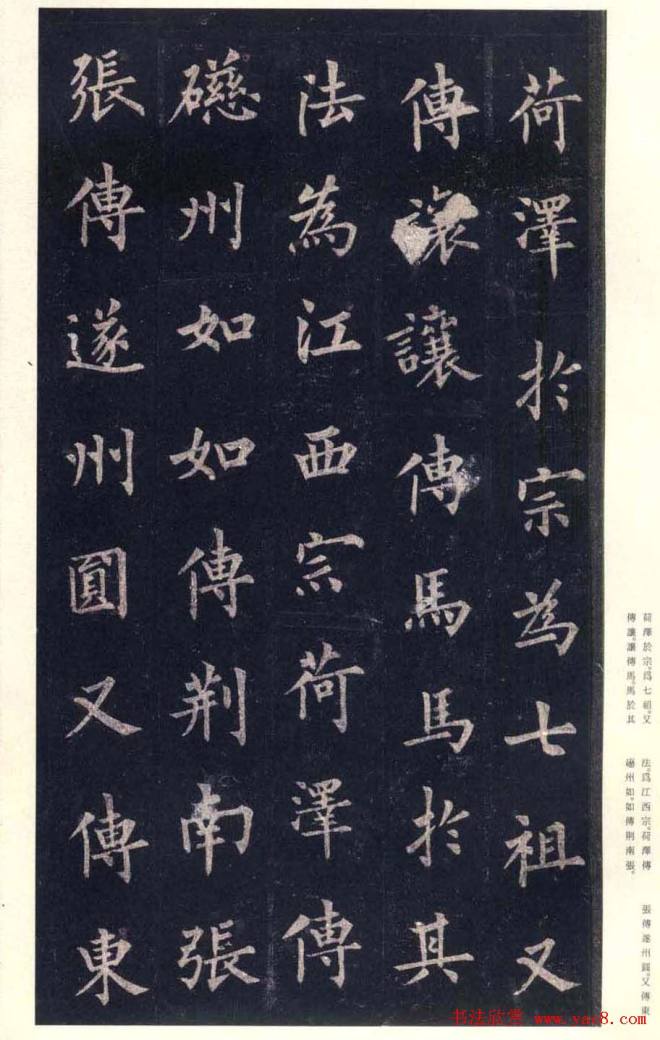 荷澤於宗為七祖又
傳讓讓傳馬馬於其
法為江西宗荷澤傳
磁州如如傳荆南張
張傳遂州圓又傳東
荷澤於宗。爲七祖。又
傳讓。讓傳馬。馬於其
法。爲江西宗。荷澤傳
磁州如。如傳荆南張。
張傳遂州圓。又傳東
书法欣赏 www.yac8.com